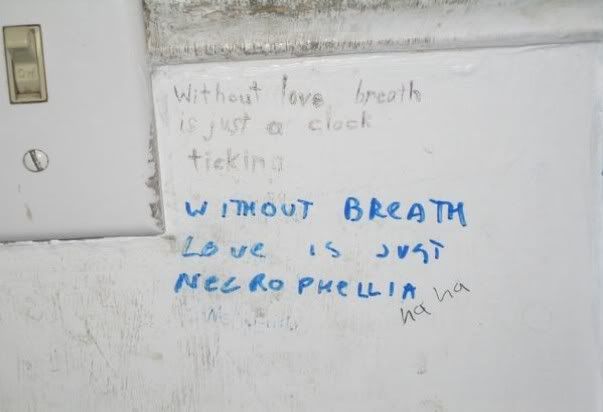 ON
Without love breath
is just a clock
ticking
WITHOUT BREATH
LOVE IS JUST
NECROPHELLIA
ha ha